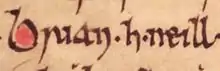 Brian·h·neill·